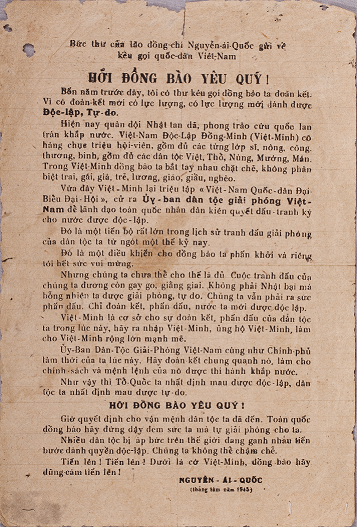 Bức thư của lão đồng-chí Nguyễn-ái-Quốc gửi về
kêu gọi quốc-dân Việt-Nam
HỠI ĐỒNG BÀO YÊU QUÝ !
Bốn năm trước đây, tôi có thư kêu gọi đồng bào ta đoàn kết.
Vì có đoàn-kết mới có lực lượng, có lực lượng mới dành được
Độc-lập, Tự-do.
Hiện nay quân đội Nhật tan dã, phong trào cứu quốc lan
tràn khắp nước. Việt-Nam Độc-Lập Đồng-Minh (Việt-Minh) có
hàng chục triệu hội-viên, gồm đủ các từng lớp sĩ, nông, công,
thương, binh, gồm đủ các dân tộc Việt, Thổ, Nùng, Mường, Mán.
Trong Việt-Minh đồng bào ta bắt tay nhau chặt chẽ, không phân
biệt trai, gái, già, trẻ, lương, giáo, giầu, nghèo.
Vừa đây Việt-Minh lại triệu tập « Việt-Nam Quốc-dân Đại-
Biểu Đại-Hội », cử ra Ủy-ban dân-tộc giải phóng Việt-
Nam để lãnh đạo toàn quốc nhân dân kiên quyết đấu-tranh kỳ
cho nước được độc-lập.
Đó là một tiến bộ rất lớn trong lịch sử tranh đấu giải phóng
của dân tộc ta từ ngót một thế kỷ nay.
Đó là một điều khiến cho đồng bào ta phấn khởi và riêng
tôi hết sức vui mừng.
Nhưng chúng ta chưa thể cho thế là đủ. Cuộc tranh đấu của
chúng ta đương còn gay go, giằng giai. Không phải Nhật bại mà
hỗng nhiên ta được giải phóng, tự do. Chúng ta vẫn phải ra sức
phấn đấu. Chỉ đoàn kết, phấn đấu, nước ta mới được độc lập.
Việt-Minh là cơ sở cho sự đoàn kết, phấn đấu của dân tộc
ta trong lúc này, hãy ra nhập Việt-Minh, ủng hộ Việt-Minh, làm
cho Việt-Minh rộng lớn mạnh mẽ.
Ủy-Ban Dân-Tộc Giải-Phóng Việt-Nam cũng như Chính-phủ
lâm thời của ta lúc này. Hãy đoàn kết chung quanh nó, làm cho
chính-sách và mệnh lệnh của nó được thi hành khắp nước.
Như vậy thì Tổ-Quốc ta nhất định mau được độc-lập, dân
tộc ta nhất định mau được tự-do.
HỠI ĐỒNG BÀO YÊU QUÝ !
Giờ quyết định cho vận mệnh dân tộc ta đã đến. Toàn quốc
đồng bào hãy đứng dậy đem sức ta mà tự giải phóng cho ta.
Nhiều dân tộc bị áp bức trên thế giới đang ganh nhau tiến
bước dành quyền độc-lập. Chúng ta không thể chậm chễ.
Tiến lên ! Tiến lên ! Dưới lá cờ Việt-Minh, đồng-bào hãy
dũng-cảm tiến lên !
NGUYỄN - ÁI - QUỐC
(tháng tám năm 1945)